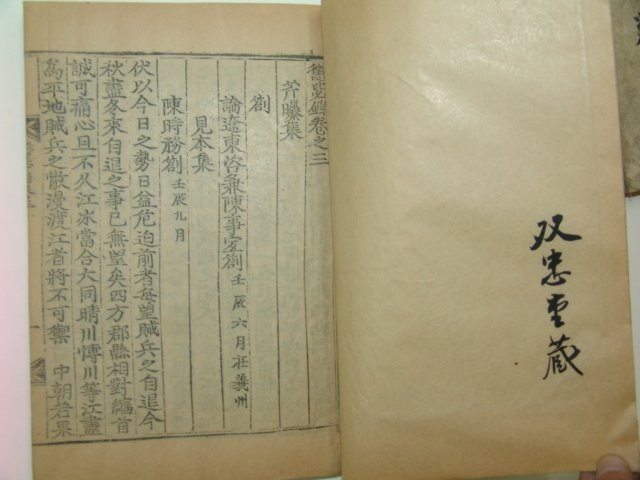 双忠堂蔵
懲毖錄卷之三
芹曝集
劄
論遼東咨兼陳事宜劄 壬辰六月在義州
見本集
陳時務劄 壬辰九月
伏以今日之勢日益危迫前者每望賊兵之自退今
秋盡冬來自退之事已無望矣四方郡縣相對縮首
誠可痛心且不久江冰當合大同晴川博川等江盡
爲平地賊兵之散漫渡江者將不可禦 中朝若果